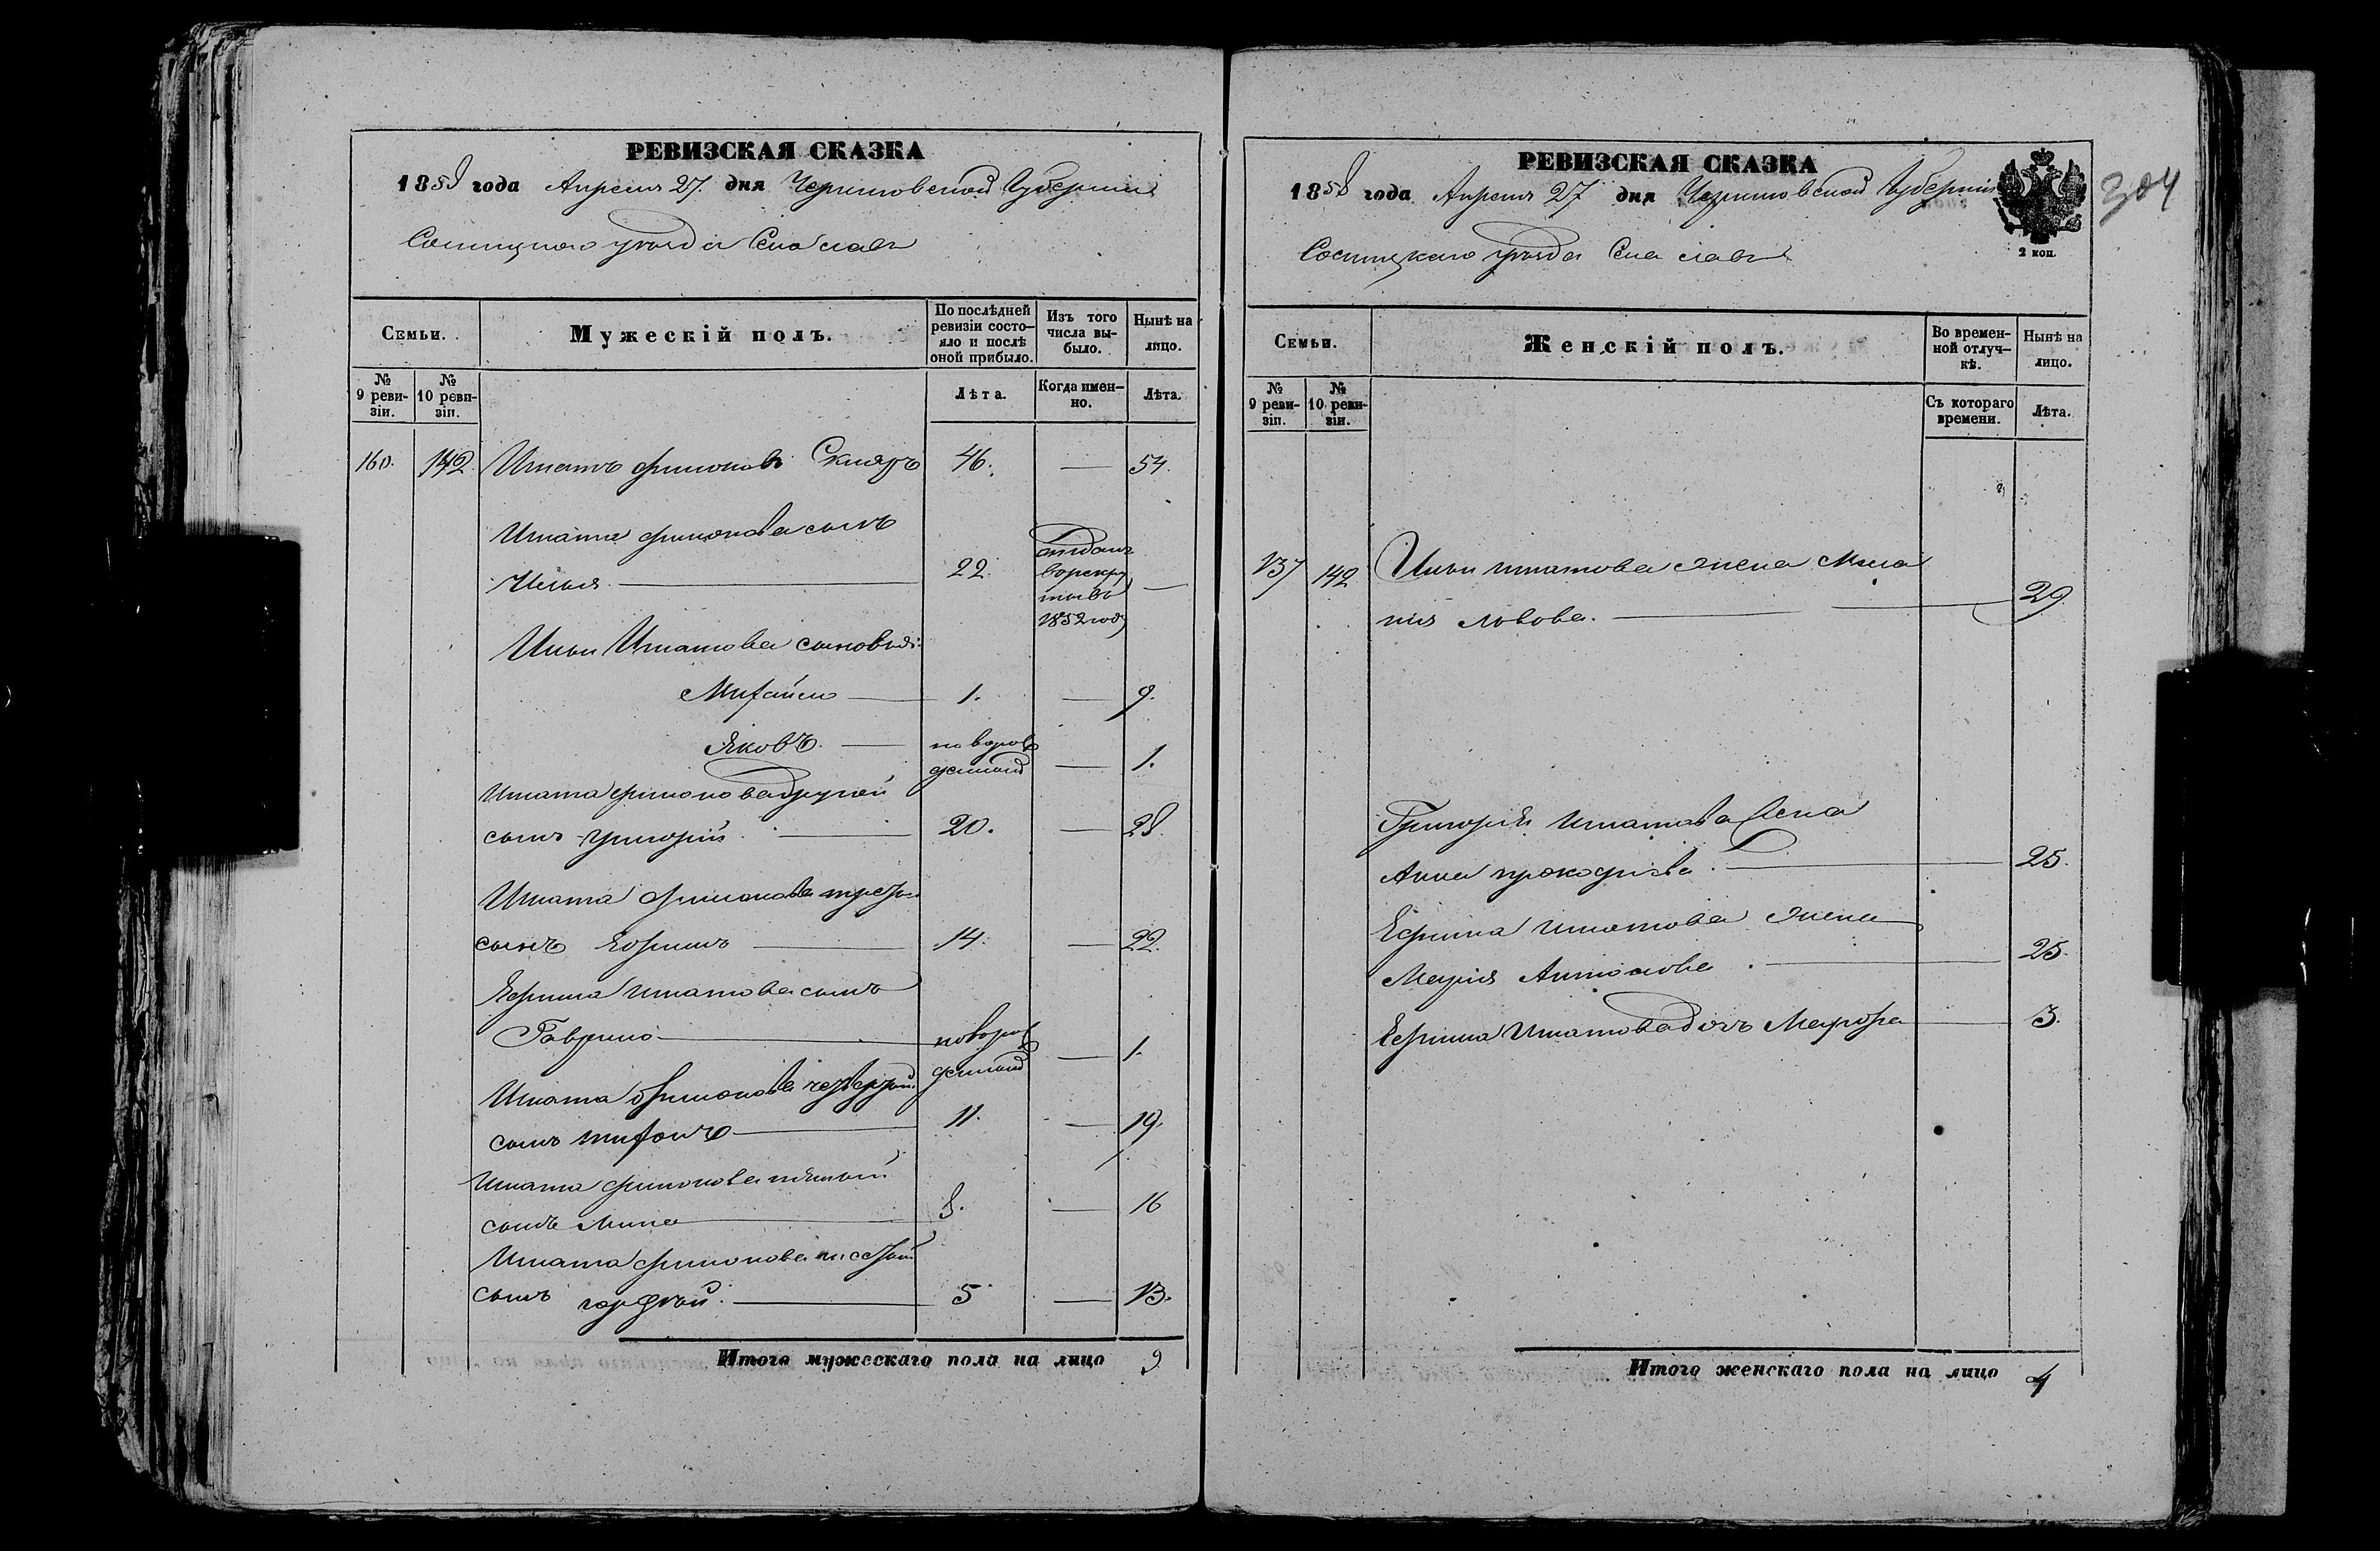 РЕВИЗСКАЯ СКАЗКА
1858 года Апреля 27. дня Черниговской Губернии
Сосницкаго уезда Села
Семьи.
Мужескій полъ.
По послѣдней ревизіи состо-яло и послѣ оной прибыло.
Изъ того числа вы-было.
Нынѣ на лицо.
№ 9 реви-зіи.
№ 10 реви-зіи.
Лѣта.
Когда имен-но.
Лѣта.
160. 142. Игнатъ Скляръ 46. — 54.
Игната сынъ
Илья 22. отданъ в рекруты в 1852 году —
Ильи Игнатова сыновья:
Михайло 1. — 9.
Яковъ. новорожденный — 1.
Игната другой
сынъ григорій 20. — 28.
Игната третій
сынъ Ефимъ 14. — 22.
Ефима Игнатова сынъ
Гаврило новорожденный — 1.
Игната четвертый
сынъ тихонъ 11. — 19.
Игната пятый
сынъ мина 8. — 16
Игната шестой
сынъ гордѣй. 5 — 13.
Итого мужескаго пола на лицо 9
РЕВИЗСКАЯ СКАЗКА
1858 года Апреля 27 дня Черниговской Губерніи
Сосницкаго уезда Села
2 коп.
304
Семьи.
Женскій полъ.
Во времен-ной отлуч-кѣ.
Нынѣ на лицо.
№ 9 реви-зіи.
№ 10 реви-зіи.
Съ котораго времени.
Лѣта.
137 142 Ильи игнатова жена Мела
нія 29.
Григорія игнатова жена
Анна прокофіева. 25.
Ефима игнатова жена
Марія Антонова. 25.
Ефима Игнатова дочь Марфа 3.
Итого женскаго пола на лицо 4